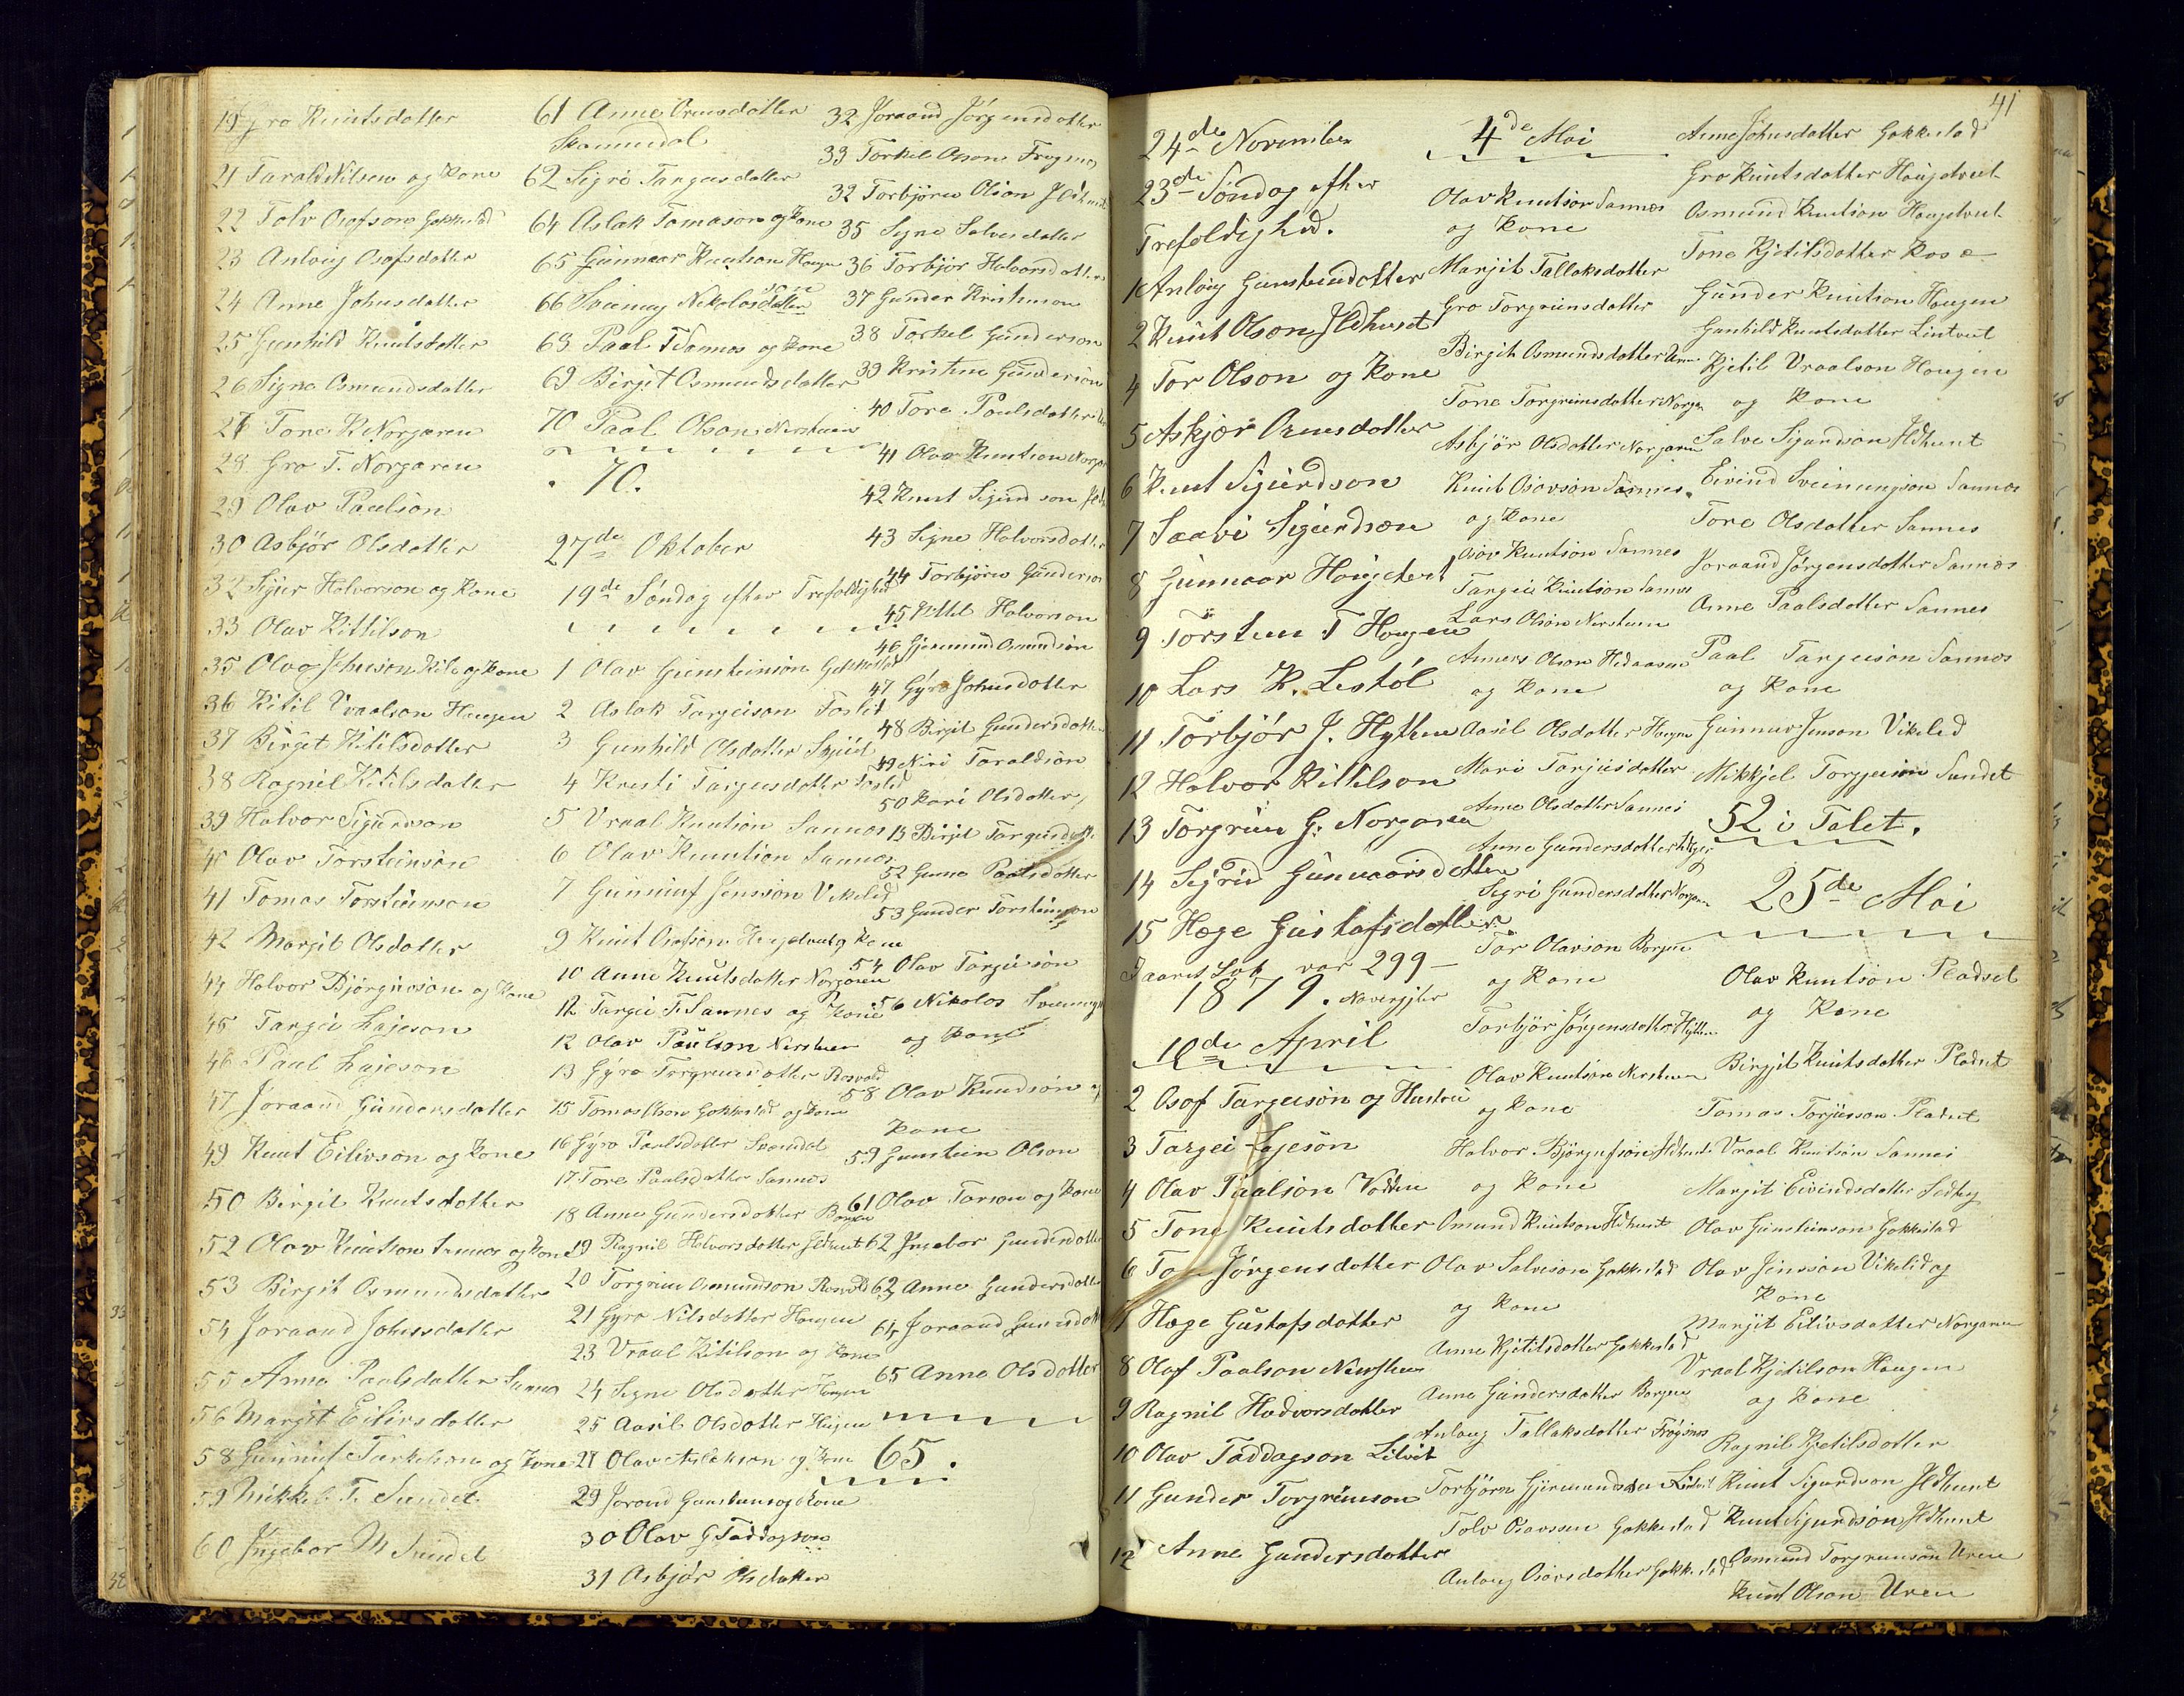 19 Gro Knutsdatter
21 Tarald Nilsen og Kone
22 Tolv Osofson Gakkestad
23 Anlaug Osofsdatter
24 Anne Johnsdatter
25 Gunhild Knutsdatter
26 Signe Osmundsdatter
27 Tone K Norgaren
28 Gro T. Norgaren
29 Olav Paulson
30 Asbjör Olsdatter
32 Sijur Halvorson og Kone
33 Olav Kittilson
35 Olav Johnson Kile og Kone
36 Kitil Vraalson Haugen
37 Birgit Kitilsdatter
38 Ragnil Kitilsdatter
39 Halvor Sigurdson
40 Olav Torsteinson
41 Tomas Torsteinson
42 Margit Olsdatter
44 Halvor Björgusson og Kone
45 Targei Lajeson
46 Paul Lajeson
47 Joraand Gundersdatter
49 Knut Eilivson og Kone
50 Birgit Knutsdatter
52 Olav Knutson Sannes og Kone
53 Birgit Osmundsdatter
54 Joraand Johnsdatter
55 Anne Paalsdatter Sannes
56 Margit Eilivsdatter
58 Gunnuf Tarkelson og Kone
59 Mikkel T. Sundet
60 Ingebor M Sundet
61 Anne Ormsdatter
Skomedal
62 Sigri Targeisdatter
64 Aslak Tomason og Kone
65 Gunnar Knutson Haugen
66 Sveinung Nikolasdatter
son
68 Paal T Sannes og Kone
69 Birgit Osmundsdatter
70 Paal Olson Nersteen
70.
27de Oktober
19de Söndag efter Trefoldighed
1 Olav Gunsteinson Gakkestad
2 Aslak Targeison Foslid
3 Gunhild Olsdatter
4 Kresti Targeisdatter Foslid
5 Vraal Knutson Sannes
6 Olav Knutson Sannes
7 Gunnuf Jensson Vikelid
9 Knut Osofson Haugetveit og Kone
10 Anne Knutsdatter Norgaren
12 Targei T. Sannes og Kone
12 Olav Paulson Nersteen
13 Gyro Torgrimsdatter Rosvold
15 Tomas Olson Gakkestad og Kone
16 Gyro Paulsdatter Skomedal
17 Tore Paulsdatter Sannes
18 Anne Gundersdatter Borgen
19 Ragnil Halvorsdatter Ildhuset
20 Torgrim Osmundson Rosvold
21 Gyro Nilsdatter Haugen
23 Vraal Kitilson og Kone
24 Signe Olsdatter Haugen
25 Aasil Olsdatter Haugen
27 Olav Aslakson og Kone
29 Jorond Gunstenson og Kone
30 Olav G Taddagson
31 Asbjör Olsdatter
32 Joraand Jörgensdatter
33 Torkel Oson Frøysnes
32 Torbjörn Olson Ildhuset
35 Signe Salvesdatter
36 Torbjör Halvorsdatter
37 Gunder Kristenson
38 Torkel Gunderson
39 Kristen Gunderson
40 Tore Paulsdatter
41 Olav Knutson Norgaren
42 Knut Sigurdson
43 Signe Halvorsdatter
44 Torbjörn Gunderson
45 Kittil Halvorson
46 Gjermund Osmundson
47 Gyro Johnsdatter
48 Birgit Gundersdatter
49 Niri Taraldson
50 Kari Olsdatter
13 Birgit Targeisdatter
52 Paalsdatter
53 Gunder Torsteinson
54 Olav Targeison
56 Nikolas Sveinungson
og Kone
58 Olav Knudson og
Kone
59 Gunstein Olson
61 Olav Torson og Kone
62 Ingebor Gundersdatter
62 Anne Gundersdatter
64 Joraand Gunnsdatter
65 Anne Olsdatter
65.
41
24de November
23de Söndag efter
Trefoldighed.
1 Anlaug Gunsteinsdatter
2 Knut Olson Ildhuset
4 Tor Olson og Kone
5 Askjær Ormsdatter
6 Knut Sigurdson
7 Saavi Sigurdson
8 Gunnaar Haugetveit
9 Torstein T Haugen
10 Lars K. Lestöl
11 Torbjör J. Hytten
12 Halvor Kittilson
13 Torgrim G. Norgaren
14 Sigrid Gunnaarsdatter
15 Hæge Gustafsdatter
Iaaret var 299 —
1879. Naavergjster
10de April
2 Osof Targeison og Hustru
3 Targei Lajeson
4 Olav Paalson Vodden
5 Tone Knutsdatter
6 Jörgensdatter
7 Hæge Gustafsdatter
8 Olaf Paalson Nersteen
9 Ragnil Hadvorsdatter
10 Olav Taddagson Litveit
11 Gunder Torgrimson
12 Anne Gundersdatter
4de Mai
Olav Knutson Sannes
og Kone
Margit Tallaksdatter
Gro Torgrimsdatter
Birgit Osmundsdatter
Tone Torgrimsdatter Norgaren
Asbjör Olsdatter Norgaren
Knut Osovson Sannes
og Kone
Osov Knutson Sannes
Targei Knutson Sannes
Lars Olson Nersteen
Anners Olson Hedaasen
og Kone
Aasil Olsdatter Haugen
Mari Torjusdatter
Anne Olsdatter Sannes
Anne Gundersdatter
Sigri Gundersdatter Norgaren
Tor Olavson Borgen
og Kone
Torbjör Jörgensdatter Hytten
Olav Knutson Nersteen
og Kone
Halvor Björgufson Ildhuset
og Kone
Omund Knutson Ildhuset
Olav Salveson Gakkestad
og Kone
Anne Kjetilsdatter Gakkestad
Anne Gundersdatter Borgen
Anlaug Tallaksdatter Frøysnes
Torbjörn Gjermundsdatter
Tolv Osovssen Gakkestad
Anlaug Osovsdatter Gakkestad
Anne Johnsdatter Gakkestad
Gro Knutsdatter Haugetveit
Osmund Knutson Haugetveit
Tone Kjetilsdatter Kosa
Gunder Knutson Haugen
Gunhild Knutsdatter Lintveit
Kjetil Vraalson Haugen
og Kone
Salve Sigurdson Ildhuset
Eivind Sveinungson Sannes
Tore Olsdatter Sannes
Joraand Jörgensdatter Sannes
Anne Paalsdatter Sannes
Paal Targeison Sannes
og Kone
Gunnuv Jenson Vikelid
Mikkjel Torgjusen Sundet
52 i Talet.
25de Mai
Olav Knutson Pladset
og Kone
Birgit Knutsdatter Pladset
Tomas Torjusson Pladset
Vraal Knutson Sannes
Margit Eivindsdatter
Olav Gunsteinson Gakkestad
Olav Jensson Vikelid og
Kone
Margit Eilivsdatter Norgaren
Vraal Kjetilson Haugen
og Kone
Ragnil Kjetilsdatter
Knut Sigurdson Ildhuset
Knut Sigurdson Ildhuset
Osmund Torgrimson Uren
Knut Olson Uren